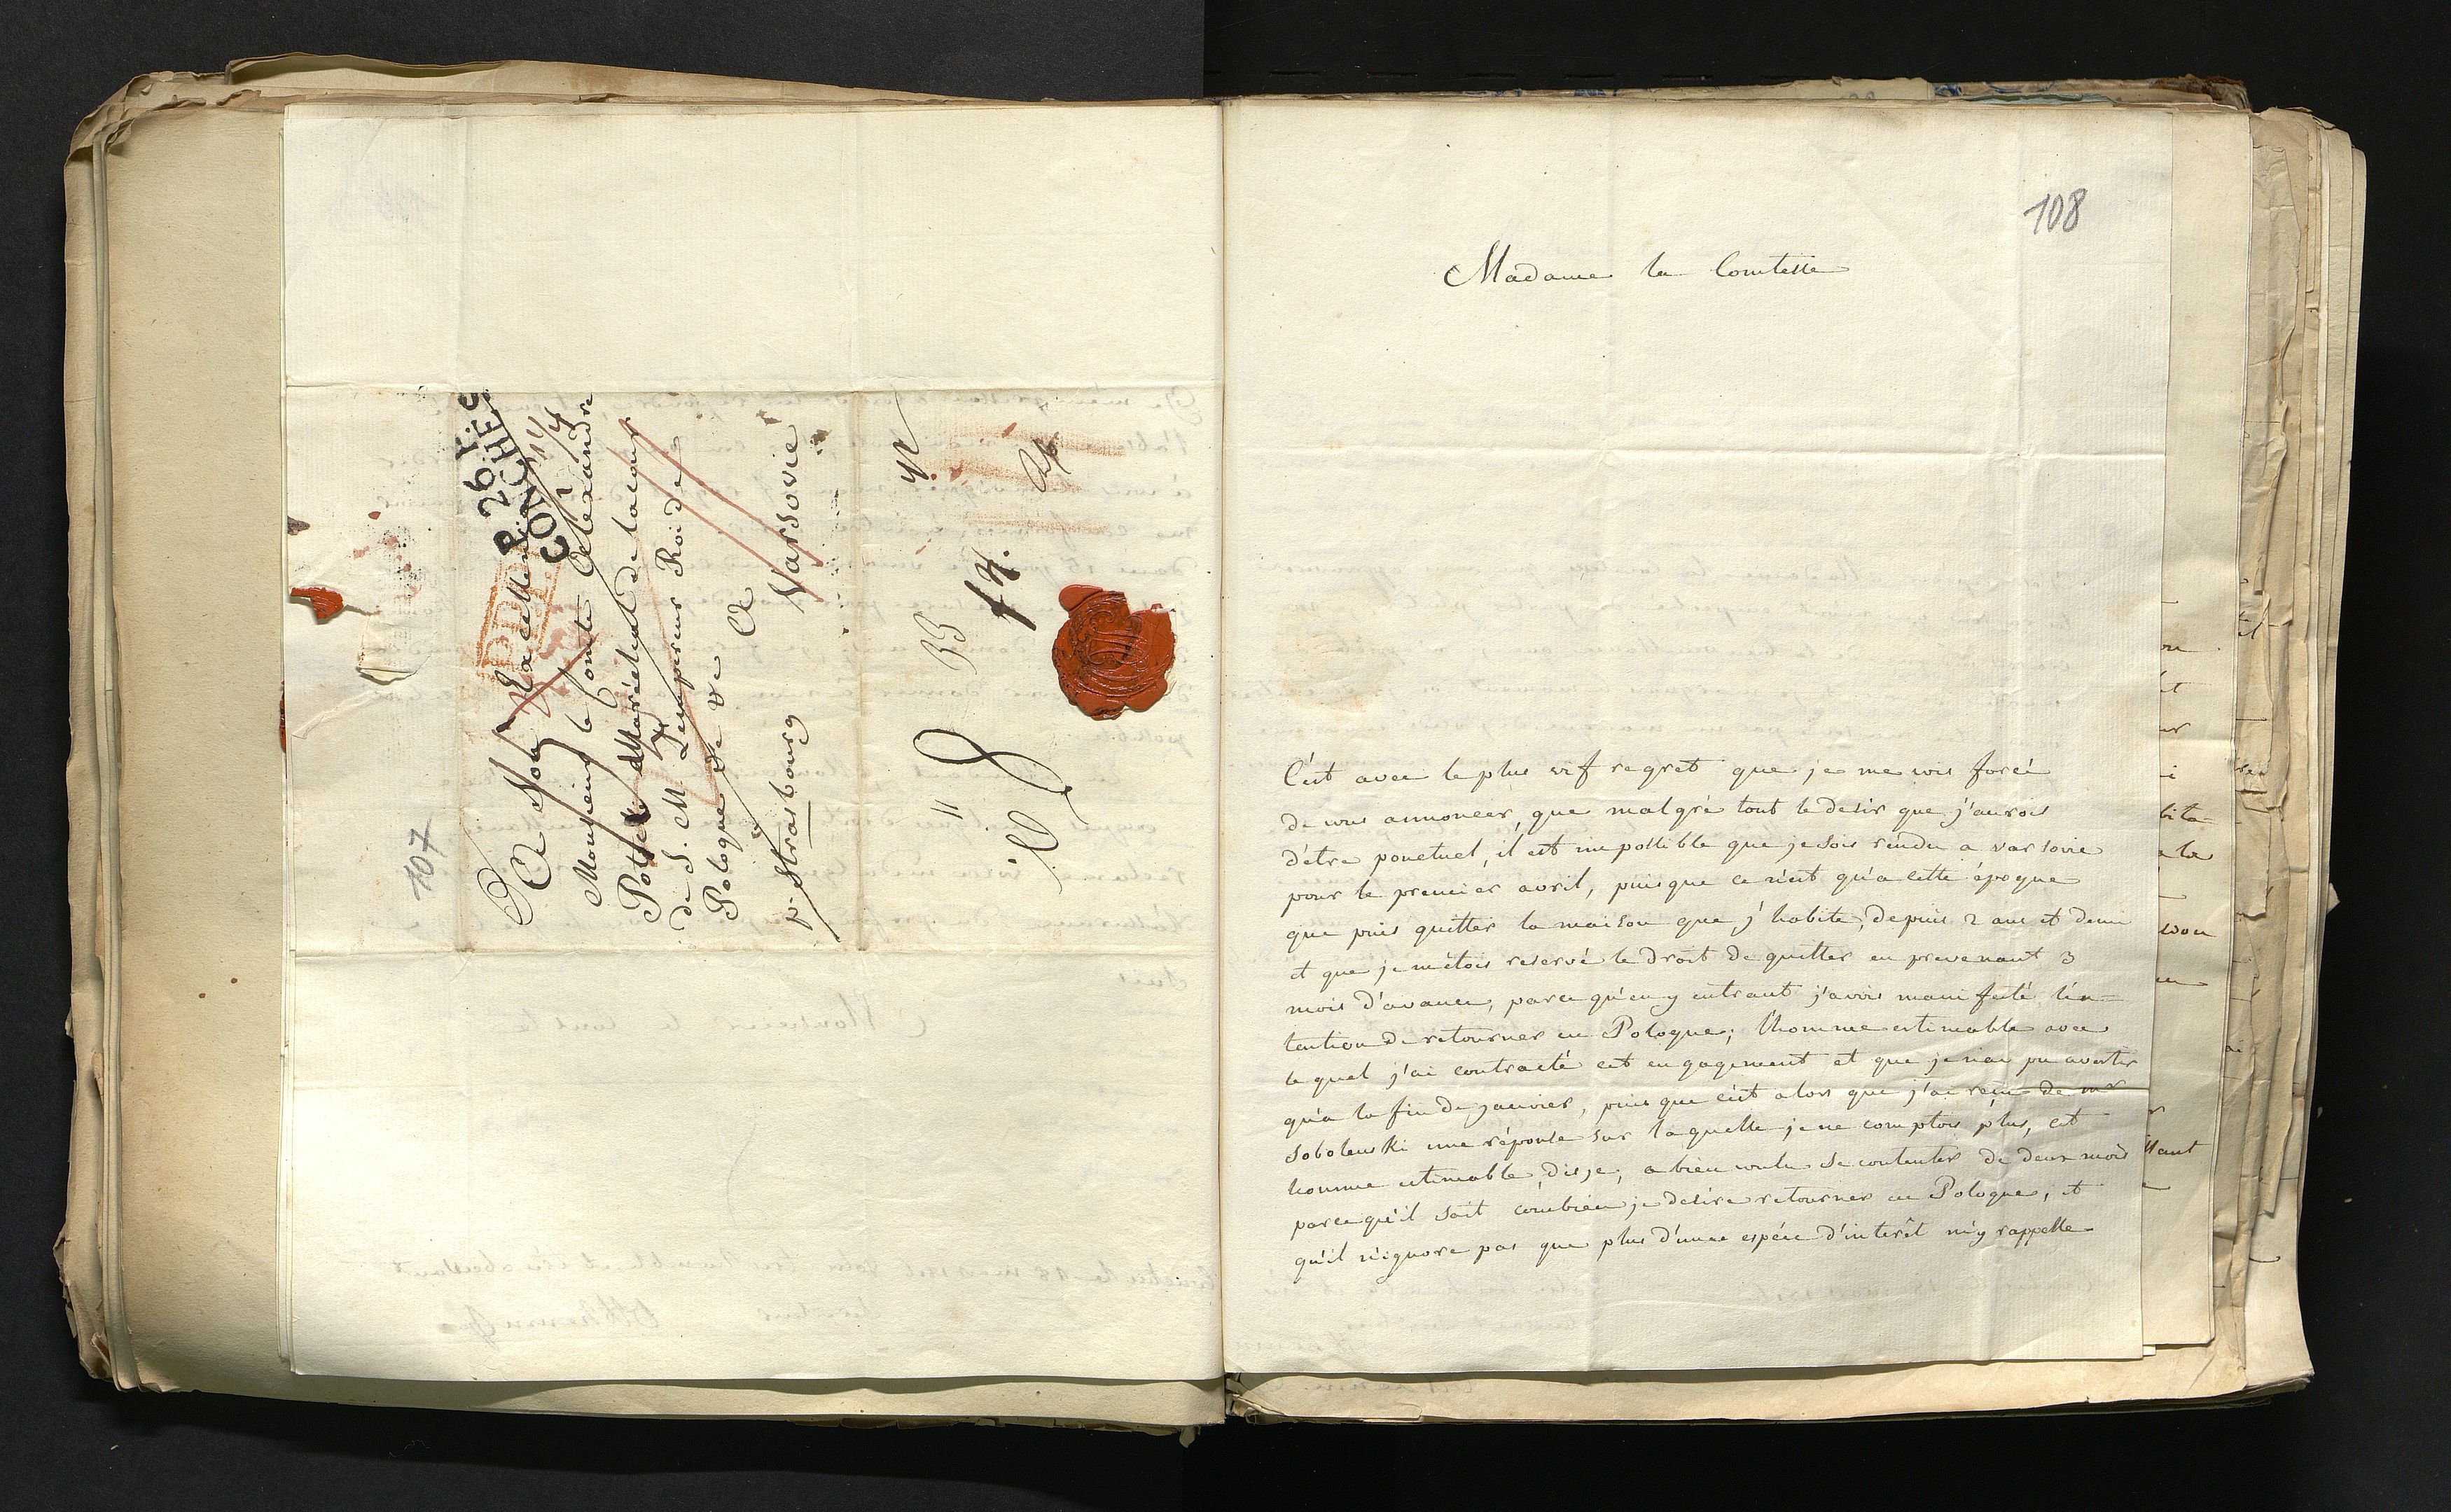 107
P. 26 P.
CONCHES
A Son Excellence
Monsieur le Comte Alexandre
Potocki Maréchal de la cour
de S. M. L'empereur Roi de
Pologne &c &c &c
A
p. Strasbourg Varsovie
108
Madame la Comtesse
C'est avec le plus vif regret que je me vois forcé
de vous annoncer, que malgré tout le desir que j'aurois
d'être ponctuel, il est impossible que je sois rendu a varsovie
pour le premier avril, puisque ce n'est qu'a cette époque
que puis quitter la maison que j'habite, depuis 2 ans et demi
et que je m'étois reservé le droit de quitter en prevenant 3
mois d'avance, parcequ'en y entrant j'avois manifesté l'in-
tention de retourner en Pologne; l'homme estimable avec
le quel j'ai contracté cet engagement et que je n'ai pu avertir
qu'a la fin de janvier, puisque c'est alors que j'ai reçu de mr
Sobolewski une réponse sur laquelle je ne comptois plus, cet
homme estimable, dis je, a bien voulu se contenter de deux mois
parcequ'il sait combien je desire retourner en Pologne, et
qu'il n'ignore pas que plus d'une espéce d'interêt m'y rappelle